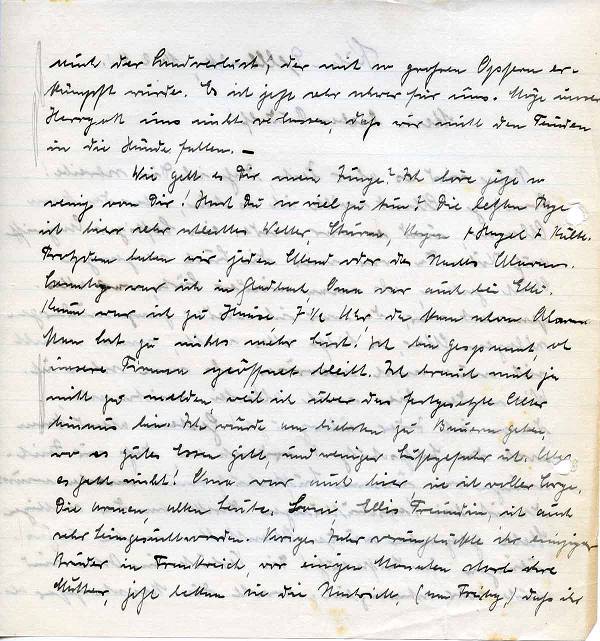 auch der Landverlust, der mit so großen Opfern er-
kämpft wurde. Es ist jetzt sehr schwer für uns. Möge unser
Herrgott uns nicht verlassen, daß wir nicht den Feinden
in die Hände fallen. –
Wie geht es Dir mein Junge? Ich höre jetzt so
wenig von Dir! Hast Du so viel zu tun? Die letzten Tage
ist hier sehr schlechtes Wetter, Sturm, Regen + Hagel + Kälte.
Trotzdem haben wir jeden Abend oder des Nachts Alarm.
Sonntag war ich in Gladbeck, Oma war auch bei Elli.
Kaum war ich zu Hause 7 ½ Uhr, da kam schon Alarm
Man hat zu nichts mehr Lust! Ich bin gespannt, ob
unsere Firma geöffnet bleibt. Ich brauch mich ja
nicht zu melden, weil ich über das festgesetzte Alter
hinaus bin. Ich würde am liebsten zu Bauern gehen,
wo es gutes Essen gibt, und weniger Luftgefahr ist. Aber
es geht nicht! Oma war auch hier, sie ist voller Sorge.
Die armen, alten Leute. Ellis Freundin, ist auch
sehr heimgesucht worden. Voriges Jahr verunglückte ihr einziger
Bruder in Frankreich, vor einigen Monaten starb ihre
Mutter, jetzt hatten sie die Nachricht, (am Freitag,) daß ihr